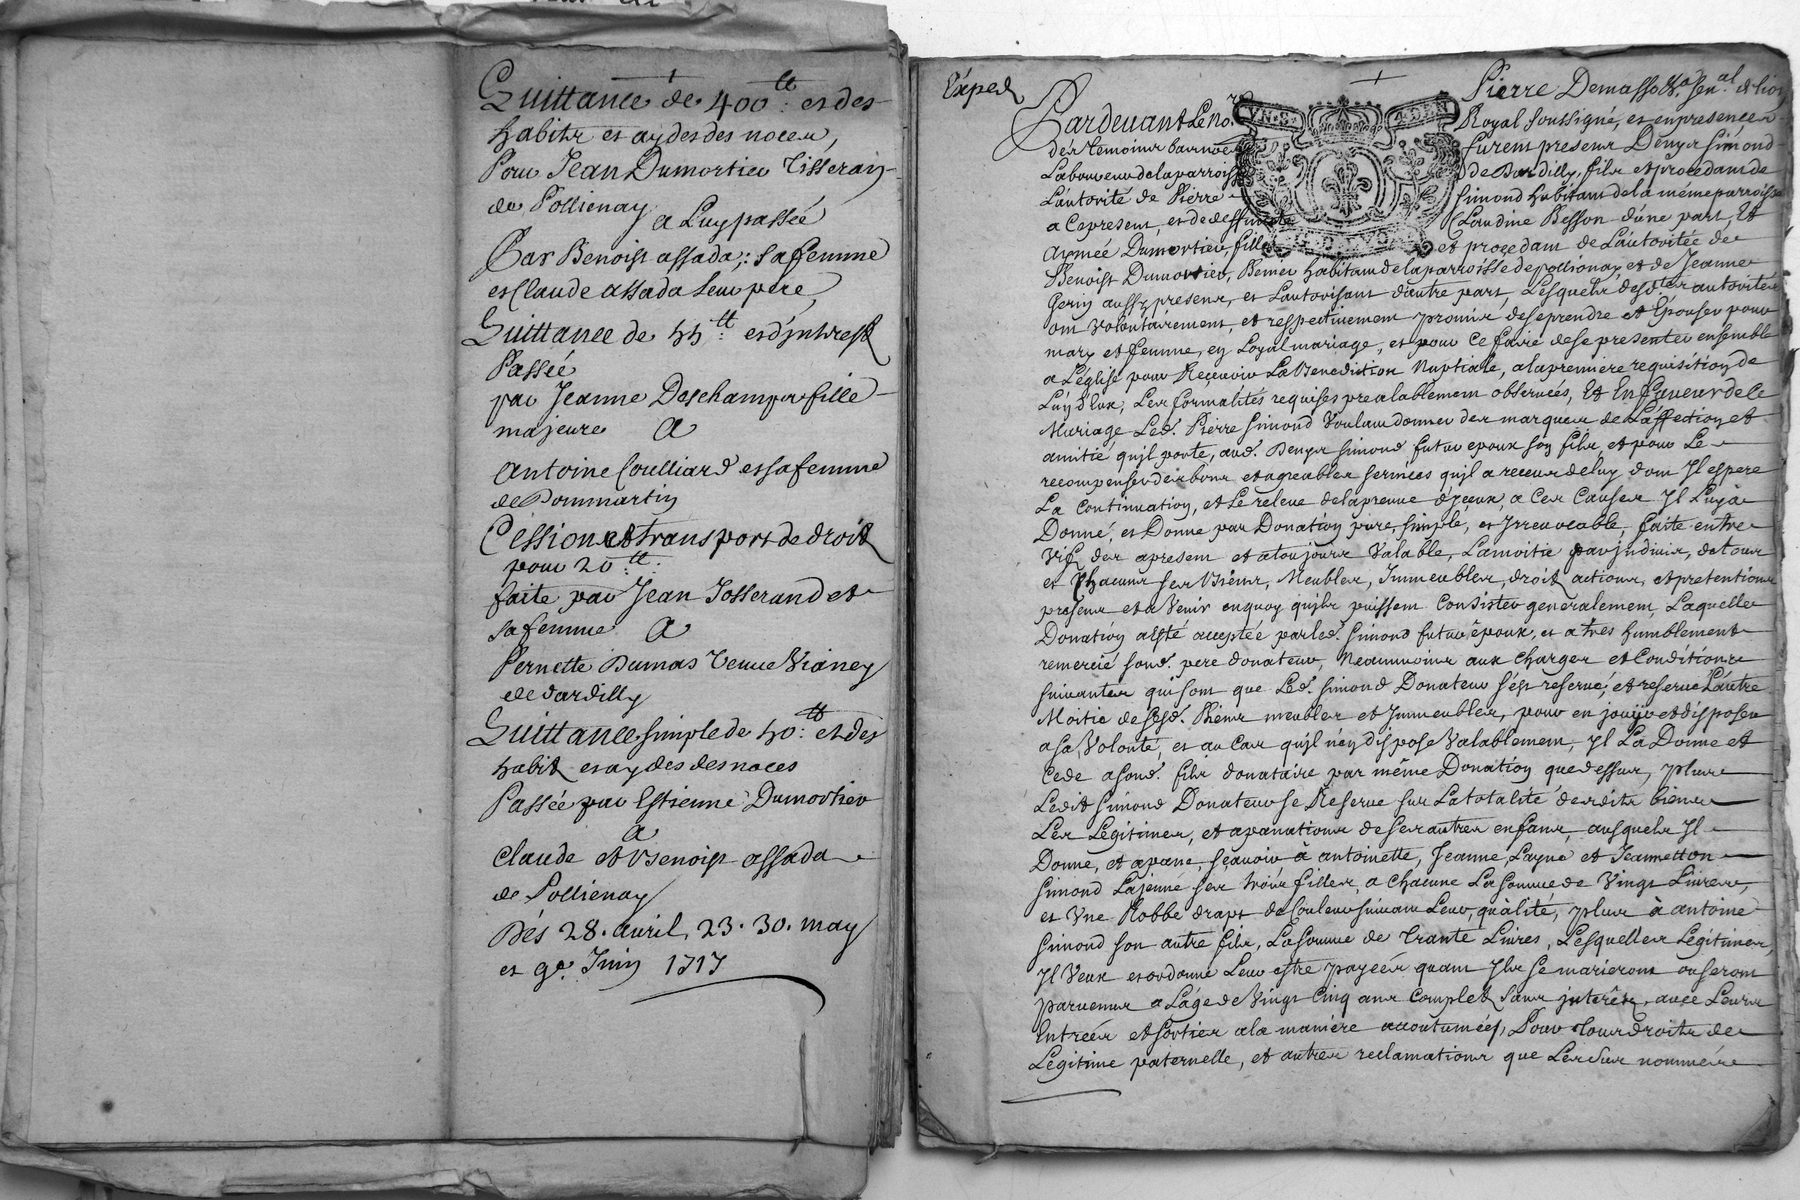 Quittance de 400ᵗᵗ: et des
habits et aydes des noces,
Pour Jean Dumortier Tisseran
de Pollienay
a Luy passée
Par Benoist assada; sa femme
et Claude assada leur pere
Quittance de 55ᵗᵗ: et d'jnterest
Passée
par Jeanne Deschamps fille
majeure a
Antoine Coulliard et sa femme
de Dommartin
Cession et transport de droit
pour 20ᵗᵗ:
faite par Jean Josserand et
sa femme a
Pernette Dumas veuve Vianey
de dardilly
Quittance simple de 50ᵗᵗ: et des
habit et aydes des noces
Passée par Estienne Dumortier
a
Claude et Benoist assada
de Pollienay
Dés 28. avril, 23. 30. may
et 9e. Juin 1717
Exped
Pierre Demasso Sen.al de lion
Pardevant Le no.re Royal soussigné, et en presence
des temoins bas nommés furent presens Denys Simond
Laboureur de la parroisse de Dardilly, fils et procedant de
L'autorité de Pierre Simond habitant de la même parroisse
a ce present, et de deffunte Claudine Besson d'une part, Et
Aymée Dumortier, fille et procedant de L'autoritée de
Benoist Dumortier, habitant de la parroisse de pollionay, et de Jeanne
Gerin aussy presens, et L'autorisant d'autre part, Lesquels desd.tes autorités
ont volontairement, et respectivement promis de se prendre et Epouser pour
mary et femme, en Loyal mariage, et pour ce faire de se presenter ensemble
a L'église pour Recevoir La Benediction Nuptiale, a la premiere requisition de
Luy d'eux, Les formalités requises prealablement observées, Et En faveur de Ce
Mariage Led. Pierre Simond Voulant donner des marques de L'affection et
amitié qu'jl porte, aud. Denys Simond futur epoux son fils et pour Le
recompenser des bons et agreables services qu'jl a receus de luy dont Jl espere
La Continuation, et Le releve de la preuve d'jceux, a Ces Causes Jl Luy a
Donné, et Donne par Donation pure, simple, et Jrrevocable faite entre
Vifs des apresent et a toujours Valable, La moitié par jndivis, de tous
et Chacuns ses Biens, Meubles, Jmmeubles, droit actions, et pretentions
presens et a Venir en quoy qu'jls puissent Consister generalement, Laquelle
Donation a esté acceptée par led. Simond futur époux, et a trés humblement
remercié sond. pere donateur, Neanmoins aux charges et Conditions
suivantes qui sont que Led. Simond Donateur s'est reservé, et reserve L'autre
Moitié de sesd. Biens meubles et Jmmeubles, pour en jouyr et disposer
a sa Volonté, et au Cas qu'jl n'en dispose Valablement, Jl La Donne et
Cede a sond. fils donataire par même Donation que dessus, plus
Ledit Simond Donateur se Reserve sur La totalité desdits biens
Les Legitimes, et apanations de ses autres enfans, ausquels Jl
Donne, et apane, sçavoir à antoinette, Jeanne Layné et Jeannetton
Simond Lajeune ses trois filles, a Chacune La somme de Vingt Livres,
et Vne Robbe draps de Couleur suivant Leur qualité, plus à antoine
Simond son autre fils, La somme de Trante Livres, Lesquelles Legitimes,
Jl Veux et ordonne Leur estre payées quant Jls se marieront ou seront
parvenus a L'age de Vingt Cinq ans Complet sans jnterêts, avec Leurs
Entrées et sorties a la maniere accoutumées, Pour tous droits de
Legitime paternelle, et autres reclamations que Les sus nommées